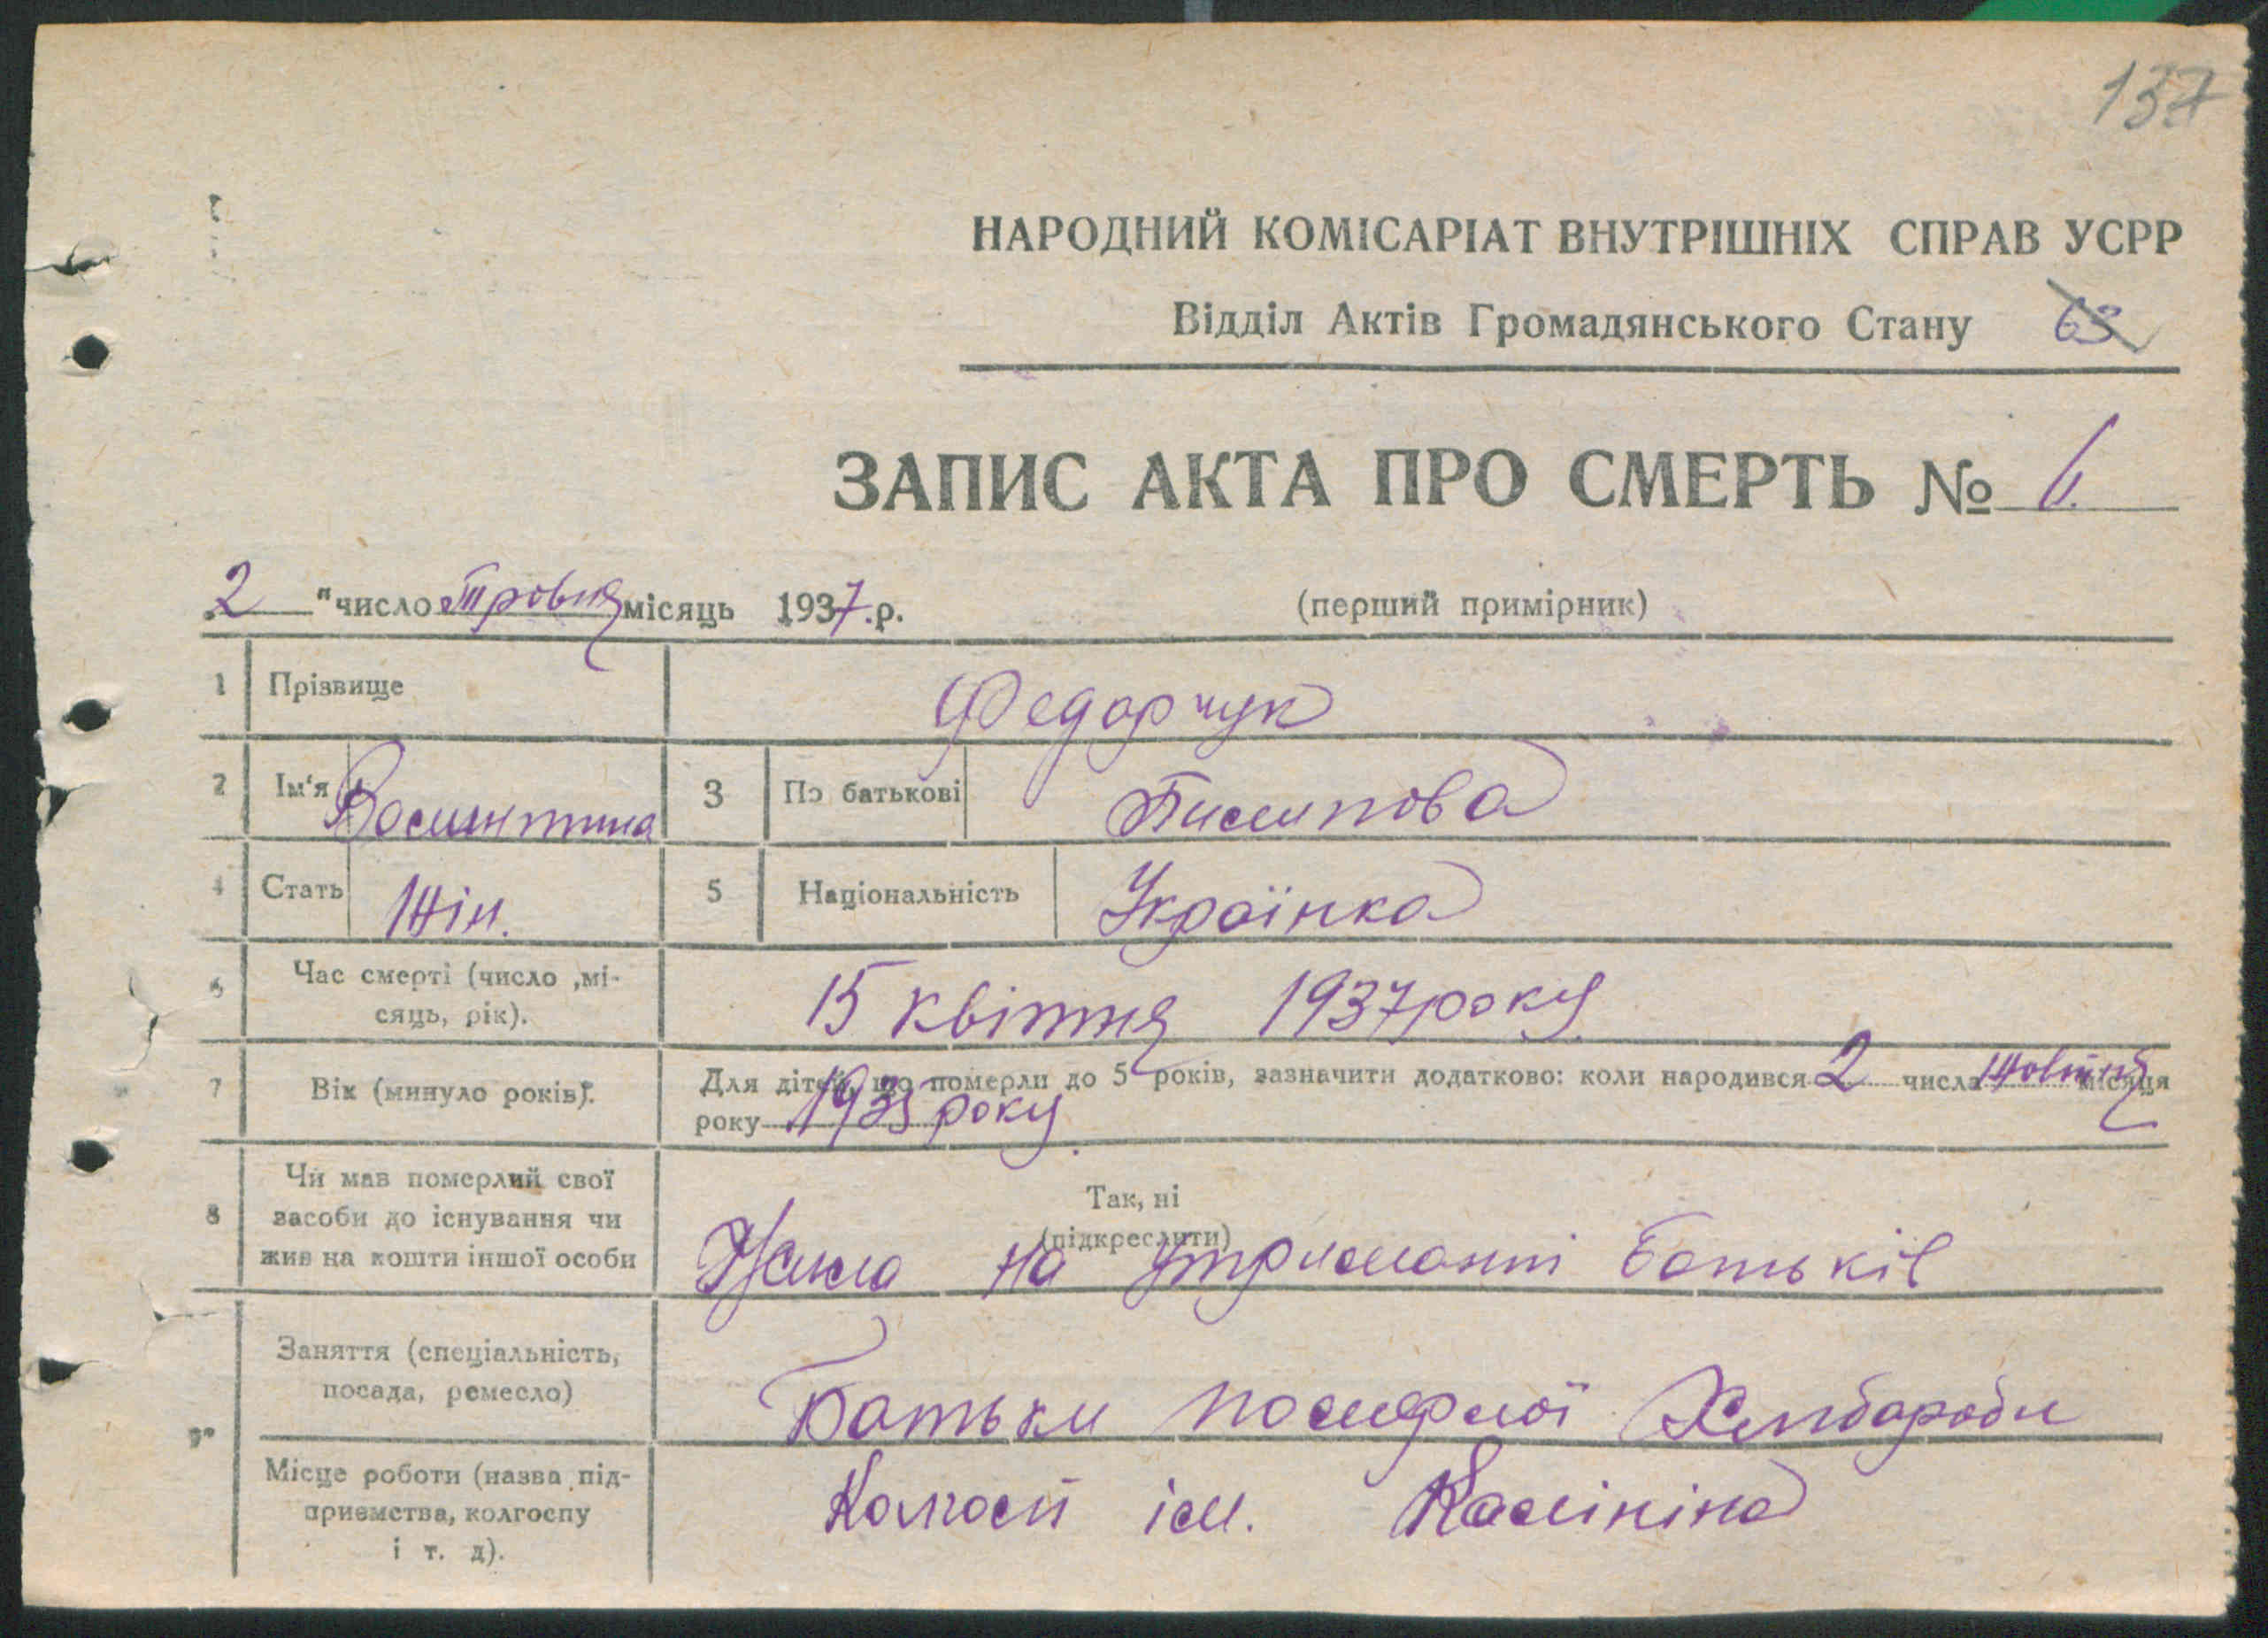 137
НАРОДНИЙ КОМІСАРІАТ ВНУТРІШНІХ СПРАВ УСРР
Відділ Актів Громадянського Стану 63
ЗАПИС АКТА ПРО СМЕРТЬ № 6.
„2 "число Тровня місяць 1937.р. (перший примірник)
1 Прізвище Федорчук
2 Ім'я Восминтина 3 По батькові Пилипова
4 Стать Жін. 5 Національність Українка
6 Час смерті (число ,мі- 15 квітня 1937 року
сяць, рік).
7 Вік (минуло років). Для дітей, що померли до 5 років, зазначити додатково: коли народився 2 числа Жовтня місяця
року 1935 року.
8 Чи мав померлий свої Так, ні
засоби до існування чи (підкреслити)
жив на кошти іншої особи Жила на утриманні батьків
Заняття (спеціальність,
посада, ремесло) Батьки померлої Хлібороби
9 Місце роботи (назва під- Колгосп ім. Калініна
приємства, колгоспу
і т. д).